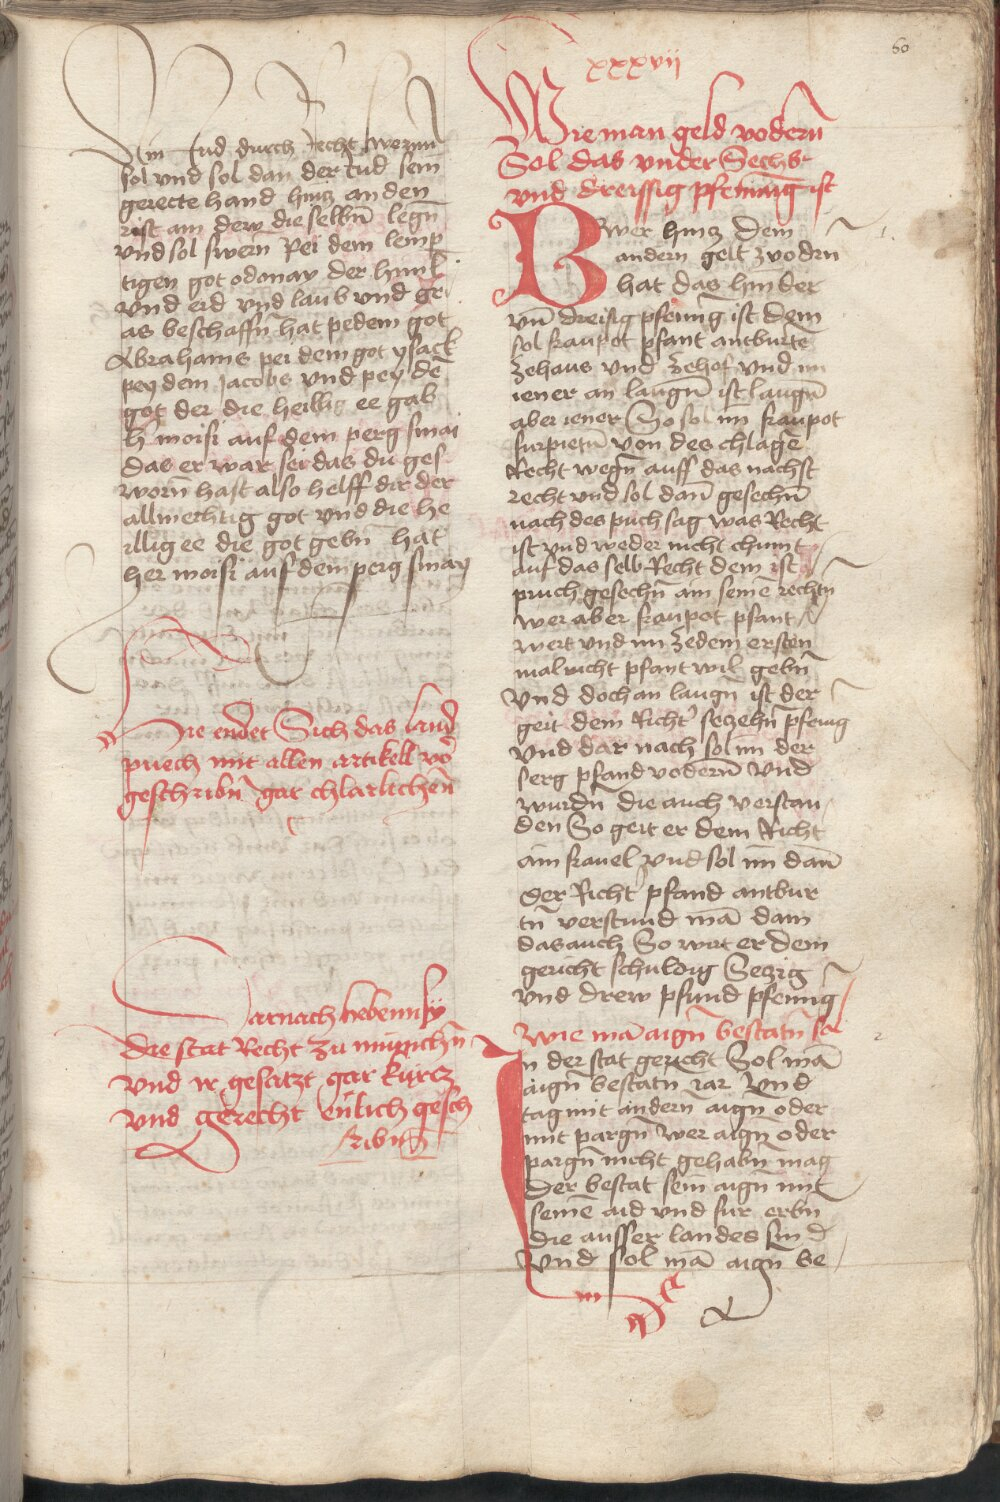 60
Ain Jud durch recht swernn
sol vnd sol dan der Jud sein
gerecte hand hincz an den
rist ain dew die selbn̄ legn̄
vnd sol swern Pei dem lemp
tigen got odonay der himl
vnd erd vnd laub vnd gr
as beschaffn̄ hat pedem got
Abrahams pei dem got ysack
pey dem Jacobs vnd pey dē
got der die heillig ee gab
h̄ moisi auf dem perg sinai
das er war sei das du ges
worn̄ hast also helff dir der
allmechtig got vnd die he
illig ee die got gebn̄ hat
her moisi auf dem perg sinay
Hie endet Sich das land
puech mit allen artikell vō
geschribn̄ gar chlarlichen̄
Darnach hebenn sy
die stat Recht zu münichn̄
vnd ir gesatzt gar kurcz
vnd gerecht enlich gesch
ribn̄
xxxvii
Wie man geld vodern̄
Sol das vnder Sechs
vnd dreissig pfenning ist
Wer hincz dem
andern gelt zvodrn
hat das hin der
vn̄ dreisig pfening ist dem
sol fraupot pfant antburte
ze haus vnd ze hof vnd im
iener an laugn̄ ist laugn̄
aber iener So sol im̄ fraupot
furpietn̄ von des chlagē
Recht wegn̄ auff das nachst
recht vnd sol dan̄ gesechn̄
nach des puch sag was Recht
ist vnd weder nicht chumt
auf das selb Recht dem ist
pruch gesechn̄ an seinē rechtn̄
wer aber fraupot pfant
wert vnd im zedem ersten
mal nicht pfant wil gebn̄
vnd doch an laugn̄ ist der
geit dem Richt' sechzehn̄ pfenig
vnd dar nach sol im der
serg pfand vodern̄ vnd
wurdn̄ die auch verstan
den So geit er dem Richt
ain fravel vnd sol im dan̄
der Richt' pfand antbur
tn̄ verstund mā dann
das auch So wirt er dem
gericht schuldig Seczig
vnd drew pfund pfening
Wie mā aign̄ bestatn̄ sol
In der stat gericht Sol mā
aign̄ bestatn̄ iar vnd
tag mit andern̄ aign̄ oder
mit pargn̄ wer aign̄ oder
pargn̄ nicht gehabn̄ mag
der bestat sein aign̄ mit
seinē aid vnd fur erbn̄
die ausser landes sind
vnd sol mā aign̄ be